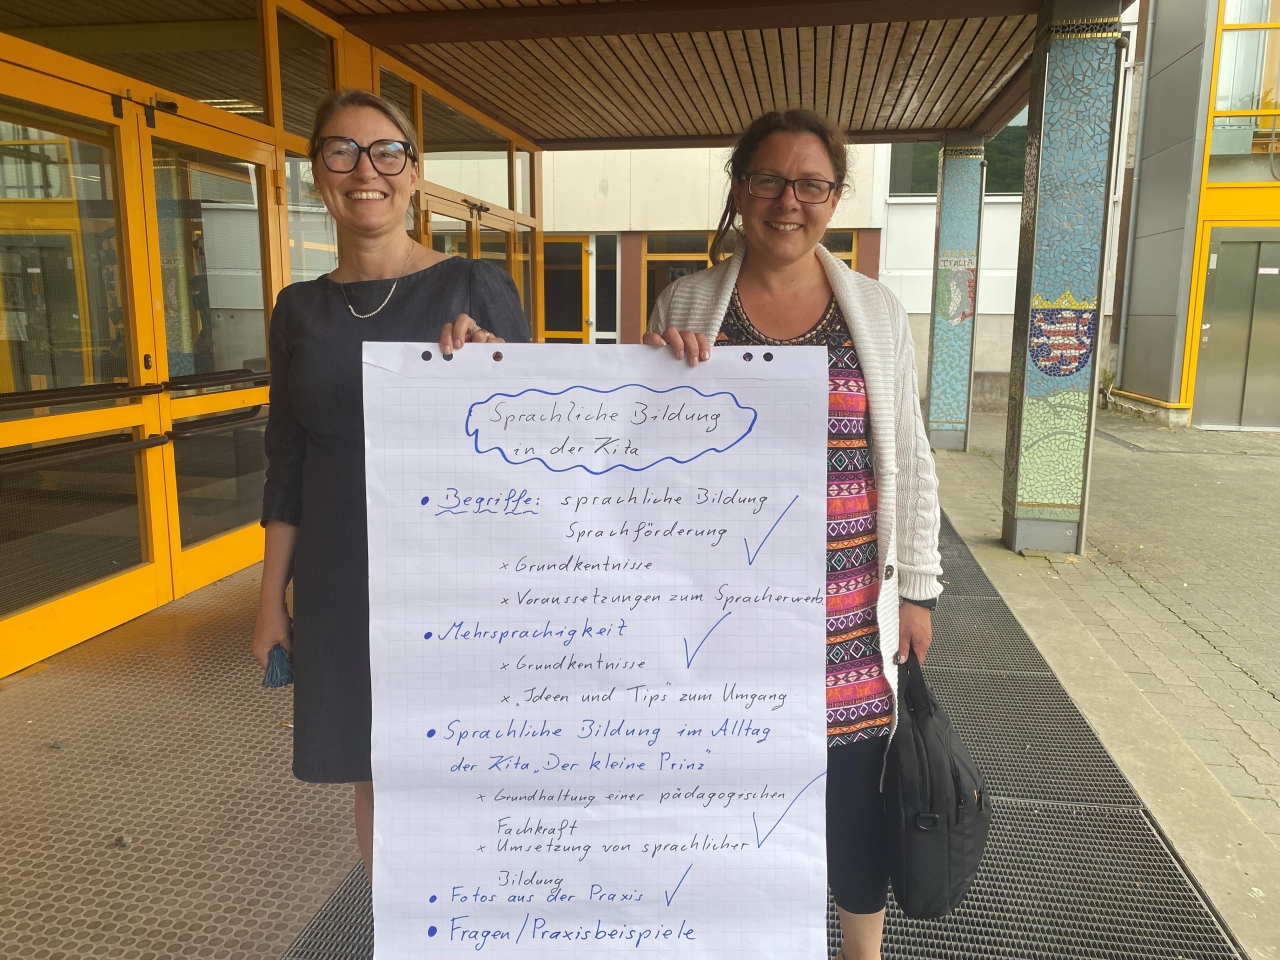 Sprachliche Bildung
in der Kita
• Begriffe: sprachliche Bildung
Sprachförderung
x Grundkentnisse
x Voraussetzungen zum Spracherwerb
• Mehrsprachigkeit
x Grundkentnisse
x „Ideen und Tips" zum Umgang
• Sprachliche Bildung im Alltag
der Kita „Der kleine Prinz"
x Grundhaltung einer pädagogischen
Fachkraft
x Umsetzung von sprachlicher
Bildung
• Fotos aus der Praxis
• Fragen/Praxisbeispiele
ITALIA